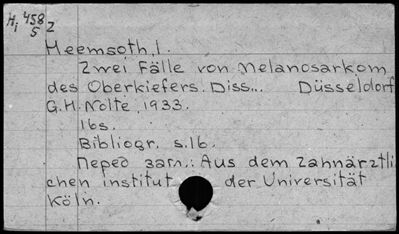 Hi 458/5 2
Heemsoth, I.
Zwei Fälle von Melanosarkom
des Oberkiefers. Diss... Düsseldorf
G.H. Nolte, 1933.
16s.
Bibliogr. s.16.
Перед загл.: Aus dem Zahnärztli
chen institut der Universität
Köln.